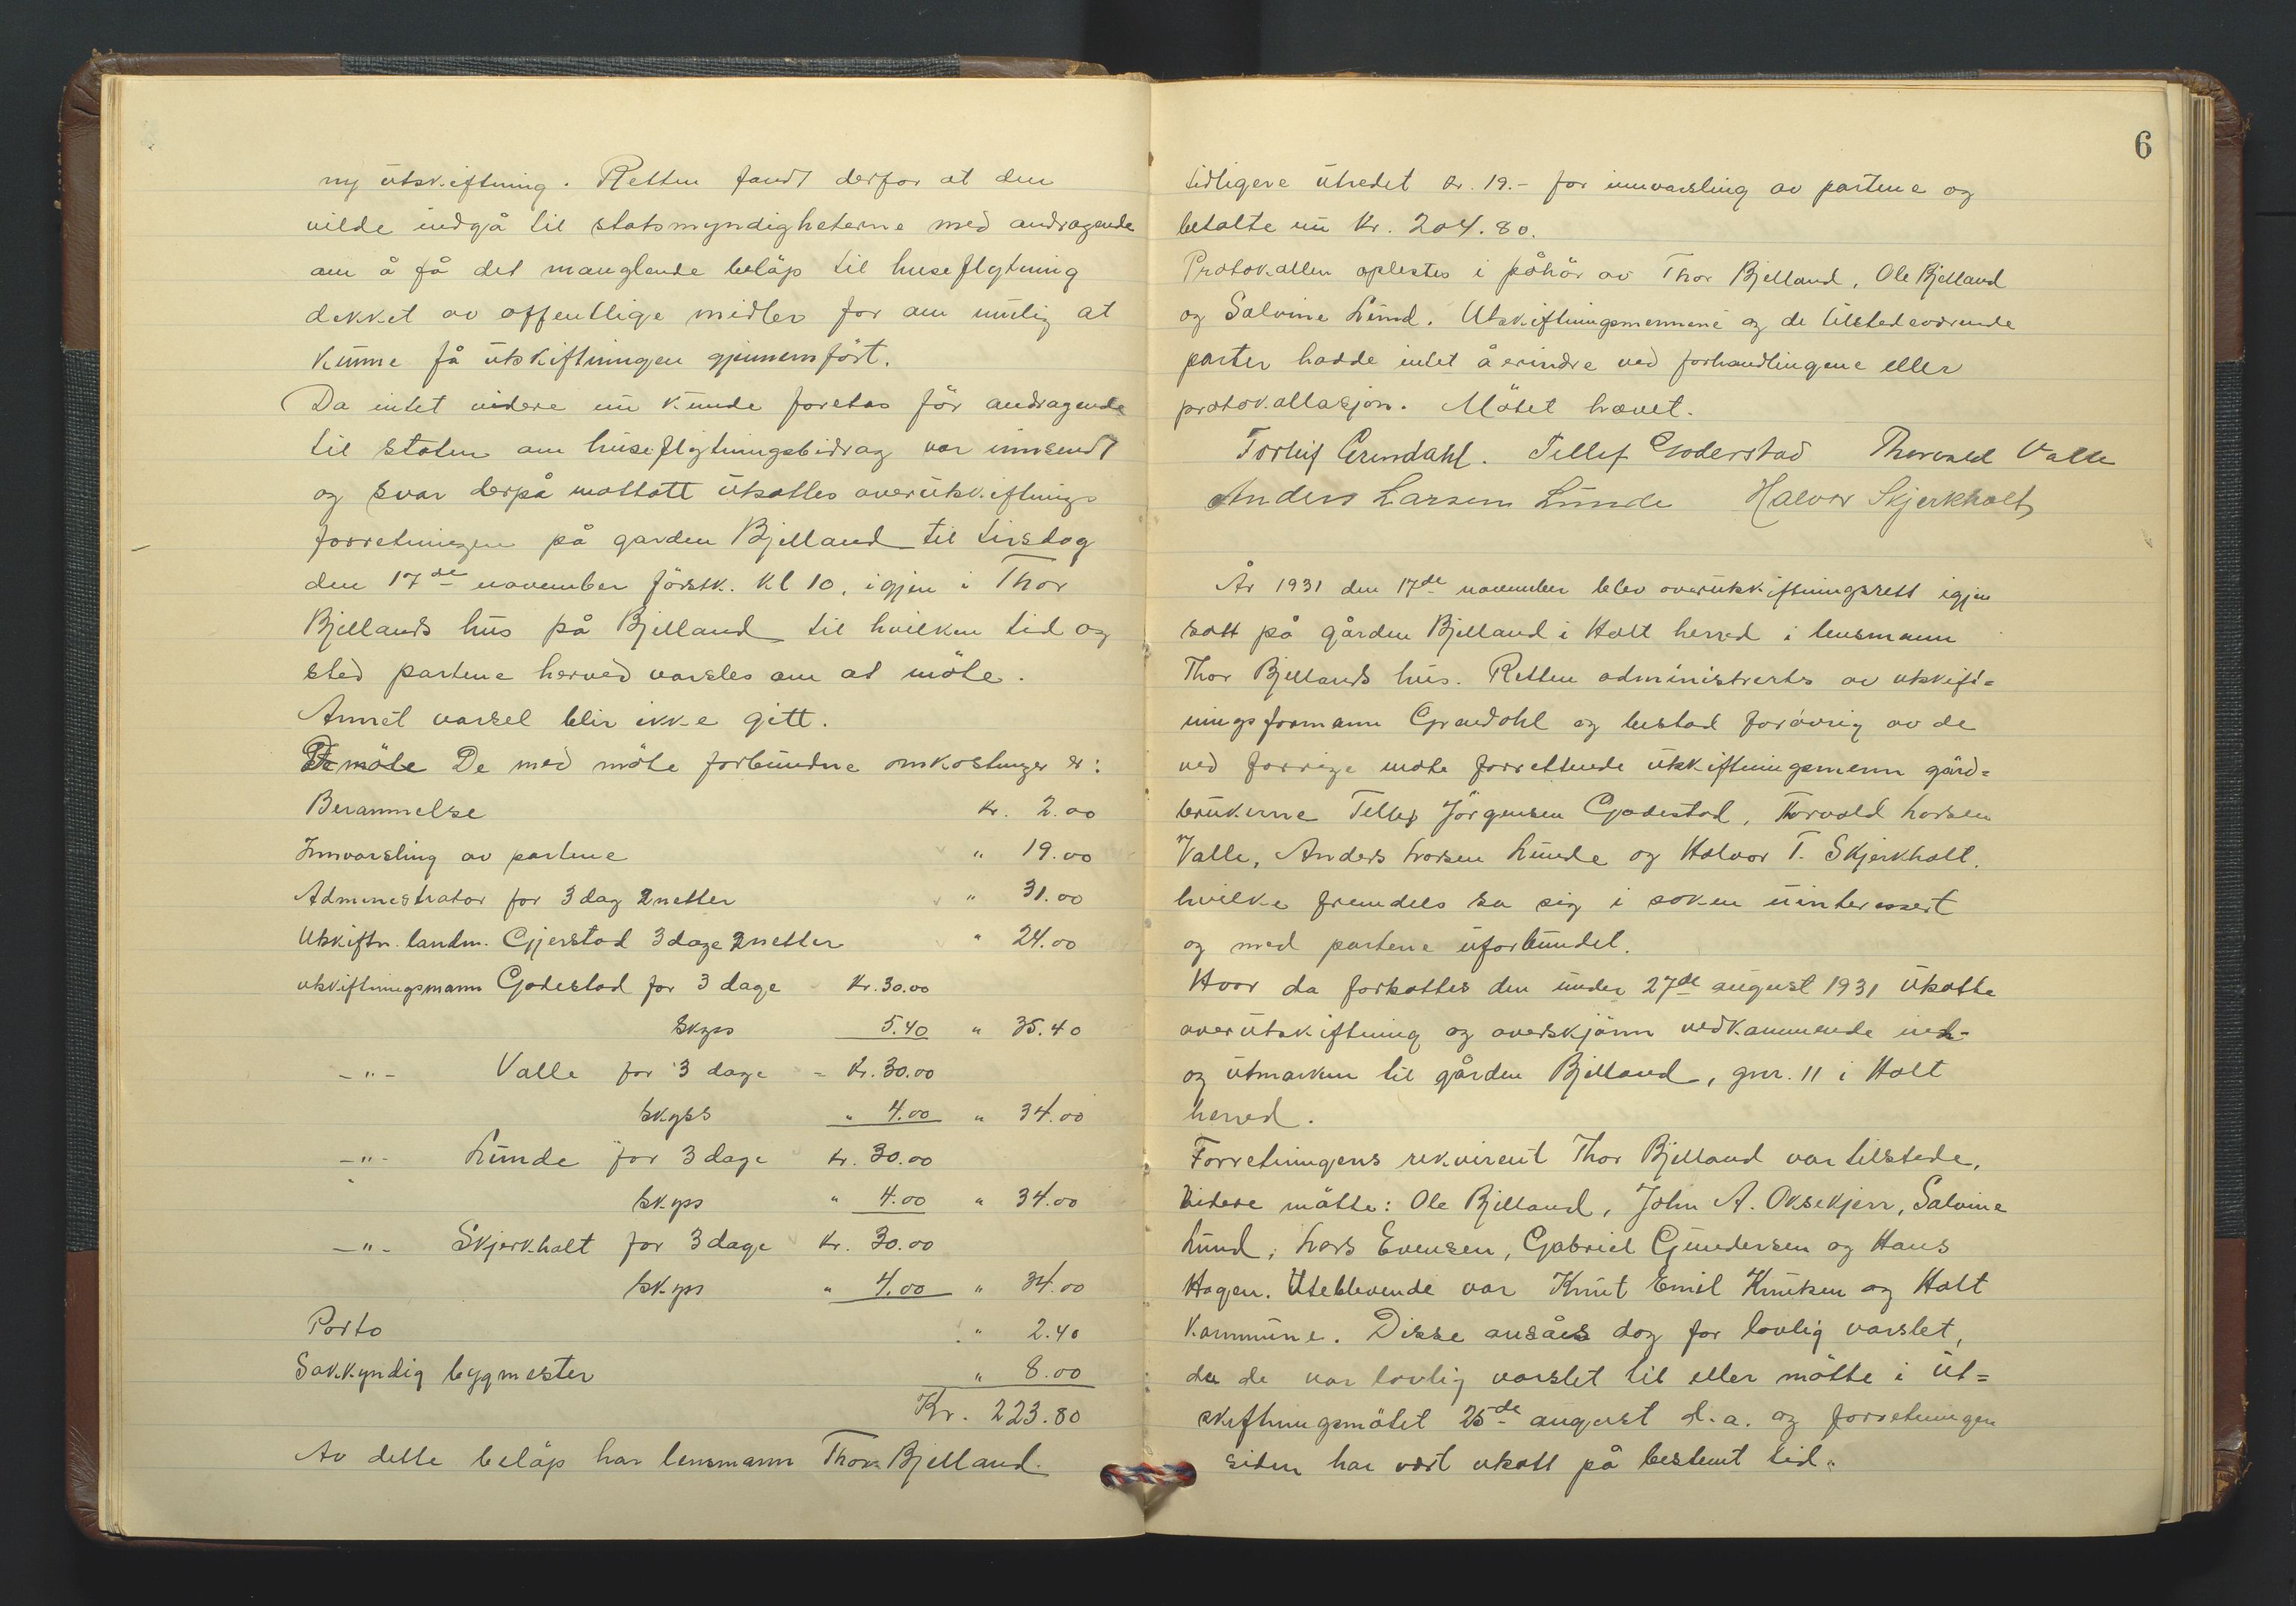 ny utskiftning. Retten fandt derfor at den
vilde indgå til statsmyndigheterne med andragende
om å få det manglende beløp til huseflytning
dekket av offentlige midler for om mulig at
kunne få utskiftningen gjennemført.
Da intet videre nu kunde foretas før andragende
til staten om huseflytningsbidrag var innsendt
og svar derpå mottatt utsattes overutskiftnings
forretningen på garden Bjelland til tirsdag
den 17de november førstk. kl 10, igjen i Thor
Bjellands hus på Bjelland til hvilken tid og
sted partene herved varsles om at møte.
Annet varsel blir ikke gitt.
møte De med møte forbundne omkostninger er:
Berammelse kr. 2.00
Innvarsling av partene " 19.00
Administrator for 3 dag 2 netter " 31.00
Utskiftn. landm. Gjerstad 3 dage 2 netter " 24.00
utskiftningsmann Godestad for 3 dage Kr. 30.00
skyss 5.40 " 35.40
-"- Valle for 3 dage - Kr. 30.00
skyss " 4.00 " 34.00
-"- Lunde for 3 dage kr. 30.00
skyss " 4.00 " 34.00
-"- Skjerkholt for 3 dage kr. 30.00
skyss " 4.00 " 34.00
Porto " 2.40
Sakkyndig bygmester " 8.00
Kr. 223.80
Av dette beløp har lensmann Thor Bjelland
6
tidligere utredet kr. 19.- for innvarsling av partene og
betalte nu kr. 204.80.
Protokollen oplestes i påhør av Thor Bjelland, Ole Bjelland
og Salvine Lund. Utskiftningsmennene og de tilstedeværende
parter hadde intet å erindre ved forhandlingene eller
protokollasjon. Møtet hævet.
Torleif Grendahl. Tellef Goderstad Thorvald Valle
Anders Larsen Lunde Halvor Skjerkholt
År 1931 den 17de november blev overutskiftningsrett igjen
satt på gården Bjelland i Holt herred i lensmann
Thor Bjellands hus. Retten administrertes av utskift=
ningsformann Grendahl og bestod forøvrig av de
ved forrige møte forrettende utskiftningsmenn gård=
brukerne Tellef Jörgensen Godestad, Torvald Larsen
Valle, Anders Larsen Lunde og Halvor T. Skjerkholt.
hvilke fremdeles sa sig i saken uinteressert
og med partene uforbundet.
Hvor da fortsattes den under 27de august 1931 utsatte
overutskiftning og overskjønn vedkommende inn-
og utmarken til gården Bjelland, gnr. 11 i Holt
herred.
Forretningens rekvirent Thor Bjelland var tilstede,
Videre møtte: Ole Bjelland, John A. Oksekjerr, Salvine
Lund, Lars Evensen, Gabriel Gundersen og Hans
Hagen. Uteblevende var Knut Emil Knutsen og Holt
kommune. Disse ansåes dog for lovlig varslet,
da de var lovlig varslet til eller møtte i ut=
skiftningsmøtet 25de august d.a. og forretningen
siden har vært utsatt på bestemt tid.